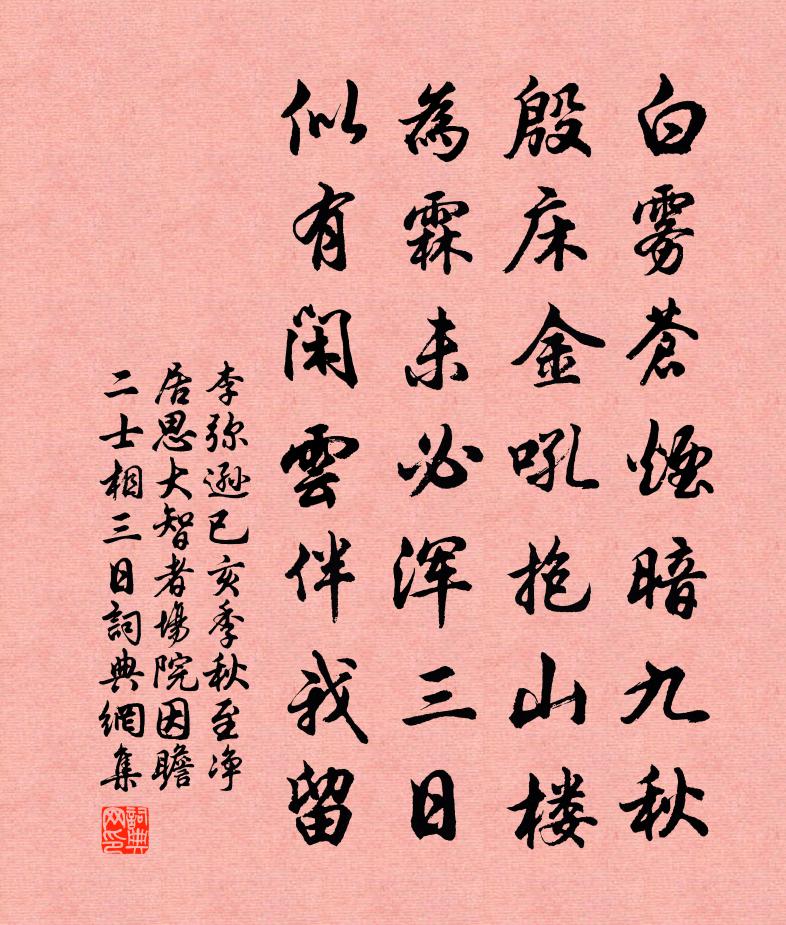 白雾蒼煙暗九秋
殷床金吼抱山楼
為霖未必浑三日
似有闲雲伴我留
李弥逊已亥季秋至净
居思大智者場院因瞻
二士相三日詞典網集
詞典网印